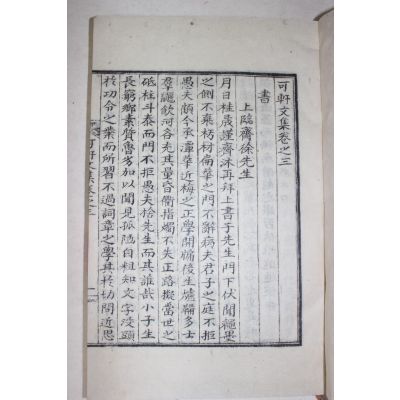 可軒文集卷之三
書
上臨齋徐先生
月日桂晟謹齋沐再拜上書于先生門下伏聞繩墨
之側不棄朽材扁華之門不辭病夫君子之庭不拒
愚夫顧今承華近梅之正學開牖後生多士
羣飮河各充其量昏衢指燭不失正路擬當世之
砥柱斗泰而門不拒愚夫捨先生而其誰哉小子生
長窮鄕素質魯劣加以聞見孤陋自粗知文字沒頭
於功令之業而所習不過詞章之學其於切問近思
可軒文集卷之三 一